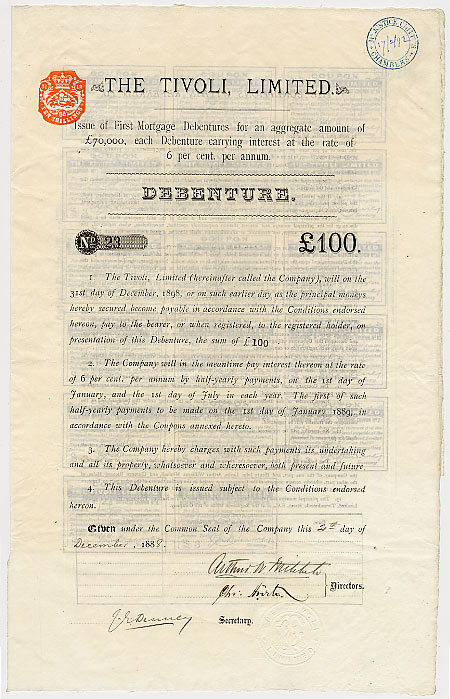 CHAMBERS
THE TIVOLI, LIMITED.
Issue of First Mortgage Debentures for an aggregate amount of
£70,000, each Debenture carrying interest at the rate of
6 per cent. per annum.
DEBENTURE.
No 28
£100.
1. The Tivoli, Limited (hereinafter called the Company), will on the
31st day of December, 1898, or on such earlier day as the principal moneys
hereby secured become payable in accordance with the Conditions endorsed
hereon, pay to the bearer, or when registered, to the registered holder, on
presentation of this Debenture, the sum of £100
2. The Company will in the meantime pay interest thereon at the rate
of 6 per cent. per annum by half-yearly payments, on the 1st day of
January, and the 1st day of July in each year. The first of such
half-yearly payments to be made on the 1st day of January 1889, in
accordance with the Coupons annexed hereto.
3. The Company hereby charges with such payments its undertaking
and all its property, whatsoever and wheresoever, both present and future.
4. This Debenture is issued subject to the Conditions endorsed
hereon.
Given under the Common Seal of the Company this day of
December, 1888.
Arthur W
Directors.
Secretary.